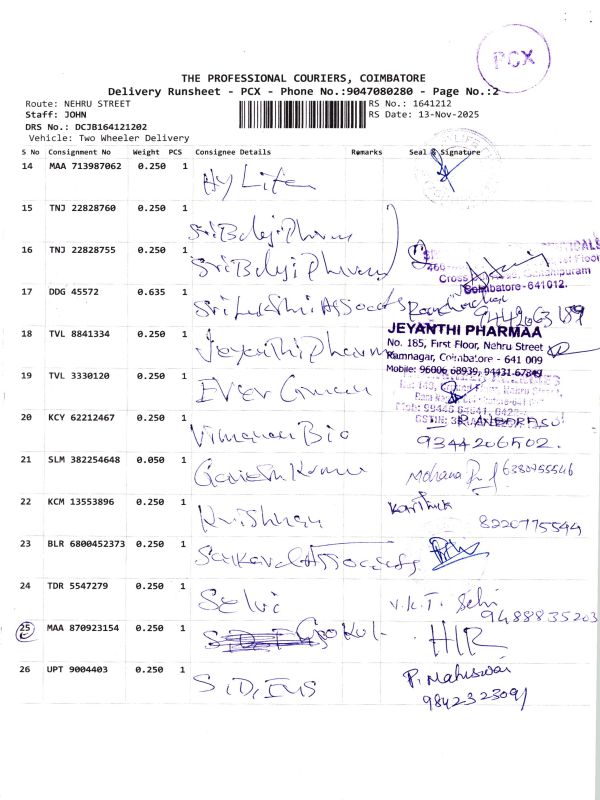 PCX
THE PROFESSIONAL COURIERS, COIMBATORE
Delivery Runsheet - PCX - Phone No.:9047080280 - Page No.:2
Route: NEHRU STREET
RS No.: 1641212
Staff: JOHN
RS Date: 13-Nov-2025
DRS No.: DCJB164121202
Vehicle: Two Wheeler Delivery
S No Consignment No Weight PCS Consignee Details Remarks Seal & Signature
14 MAA 713987062 0.250 1 Hy Life
15 TNJ 22828760 0.250 1 Sri Balaji Pharma
16 TNJ 22828755 0.250 1 Sri Balaji Pharma
Coimbatore-641012.
17 DDG 45572 0.635 1 Sri Lakshmi Associates
18 TVL 8841334 0.250 1 Jeyanthi Pharma
JEYANTHI PHARMAA
No. 185, First Floor, Nehru Street
Ramnagar, Coimbatore - 641 009
Mobile: 96006 68939, 94431 67849
19 TVL 3330120 0.250 1 Ever
20 KCY 62212467 0.250 1 Vimanan Bio
9344206502.
21 SLM 382254648 0.050 1 Ganesh Kumar Mohana 6380755546
22 KCM 13553896 0.250 1 Krishnan Karthick
8220775544
23 BLR 6800452373 0.250 1 Associates
24 TDR 5547279 0.250 1 Selvi V.K.T. Selvi
9488835203
25 MAA 870923154 0.250 1 Gokul HIR
26 UPT 9004403 0.250 1 S.D. P. Maheswari
9842323091